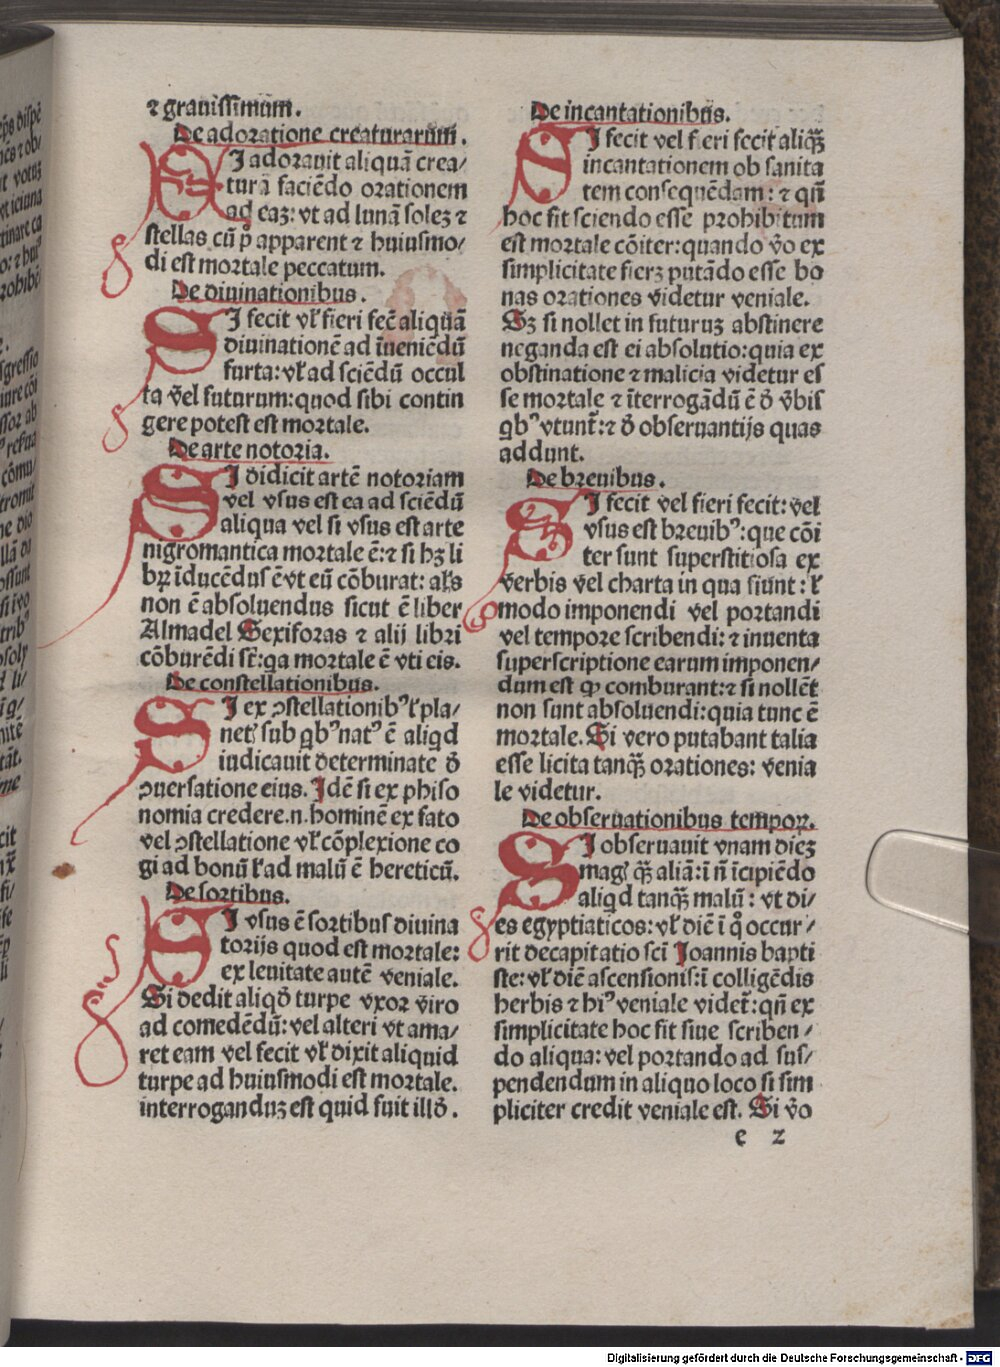 ⁊ grauiſſimũm.
De adoratione creaturarũm.
SI adorauit aliquã crea/
turã faciẽdo orationem
ad eaꝫ: vt ad lunã ſoleꝫ ⁊
ſtellas cũ ꝑ apparent ⁊ huiuſmo/
di eſt mortale peccatum.
De diuinationibus.
SI fecit vł fieri fec̄ aliquã
diuinationẽ ad ĩueniẽdũ
furta: vł ad ſciẽdũ occul
ta v̄el futurum: quod ſibi contin
gere poteſt eſt mortale.
De arte notoria.
SI didicit artẽ notoriam
vel vſus eſt ea ad ſciẽdũ
aliqua vel ſi vſus eſt arte
nigromantica mortale ẽ: ⁊ ſi hꝫ li
bꝝ ĩducẽdus ẽ vt eũ cõburat: als
non ẽ abſoluendus ſicut ẽ liber
Almadel Sexiforas ⁊ alij libri
cõburẽdi ſt̄: qa mortale ẽ vti eis.
De conſtellationibus.
SI ex ꝯſtellationibꝰ ł pla/
netꝭ ſub qbꝰ natꝰ ẽ aliqd
iudicauit determinate d̄
ꝯuerſatione eius. Idẽ ſi ex phiſo
nomia credere .n. hominẽ ex fato
vel ꝯſtellatione vł cõplexione co
gi ad bonũ ł ad malũ ẽ hereticũ.
De ſortibus.
SI vſus ẽ ſortibus diuina
torijs quod eſt mortale:
ex leuitate autẽ veniale.
Si dedit aliqd̄ turpe vxor viro
ad comedẽdũ: vel alteri vt ama/
ret eam vel fecit vł dixit aliquid
turpe ad huiuſmodi eſt mortale.
interroganduꝫ eſt quid fuit illd̄.
De incantationibus.
SI fecit vel fieri fecit aliqꝫ̃
incantationem ob ſanita
tem conſequẽdam: ⁊ qñ
hoc fit ſciendo eſſe prohibitum
eſt mortale cõiter: quando v̄o ex
ſimplicitate fieꝫ putãdo eſſe bo
nas orationes videtur veniale.
Sꝫ ſi nollet in futuruꝫ abſtinere
neganda eſt ei abſolutio: quia ex
obſtinatione ⁊ malicia videtur eſ
ſe mortale ⁊ ĩterrogãdũ ẽ d̄ v̄bis
qbꝰ vtunt᷑: ⁊ d̄ obſeruantijs quas
addunt.
De breuibus.
SI fecit vel fieri fecit: vel
vſus eſt breuibꝰ: que cõi
ter ſunt ſuperſtitioſa ex
verbis vel charta in qua fiunt: ł
modo imponendi vel portandi
vel tempore ſcribendi: ⁊ inuenta
ſuperſcriptione earum imponen/
dum eſt ꝙ comburant: ⁊ ſi nollẽt
non ſunt abſoluendi: quia tunc ẽ
mortale. Si vero putabant talia
eſſe licita tanqꝫ̃ orationes: venia
le videtur.
De obſeruationibus tempoꝝ.
SI obſeruauit vnam dieꝫ
magꝭ qꝫ̃ aliã: i ñ ĩcipiẽdo
aliqd tanqꝫ̃ malũ: vt di/
es egyptiaticos: vł diẽ ĩ qͦ occur/
rit decapitatio ſcĩ Joannis bapti
ſte: vł diẽ aſcenſionis: ĩ colligẽdis
herbis ⁊ hiꝰ veniale videt᷑: qñ ex
ſimplicitate hoc fit ſiue ſcriben/
do aliqua: vel portando ad ſuſ/
pendendum in aliquo loco ſi ſim
pliciter credit veniale eſt. Si v̄o
e 2
Digitalisierung gefördert durch die Deutsche Forschungsgemeinschaft - DFG